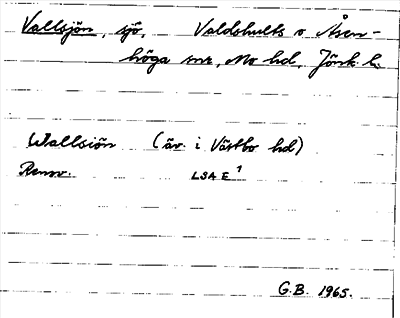 Vallsjön, sjö, Valdshults o Åsen-
höga snr, Mo hd, Jönk. l.
Wallsiön (äv. i Västbo hd)
Renov. LSA E¹
G.B. 1965.